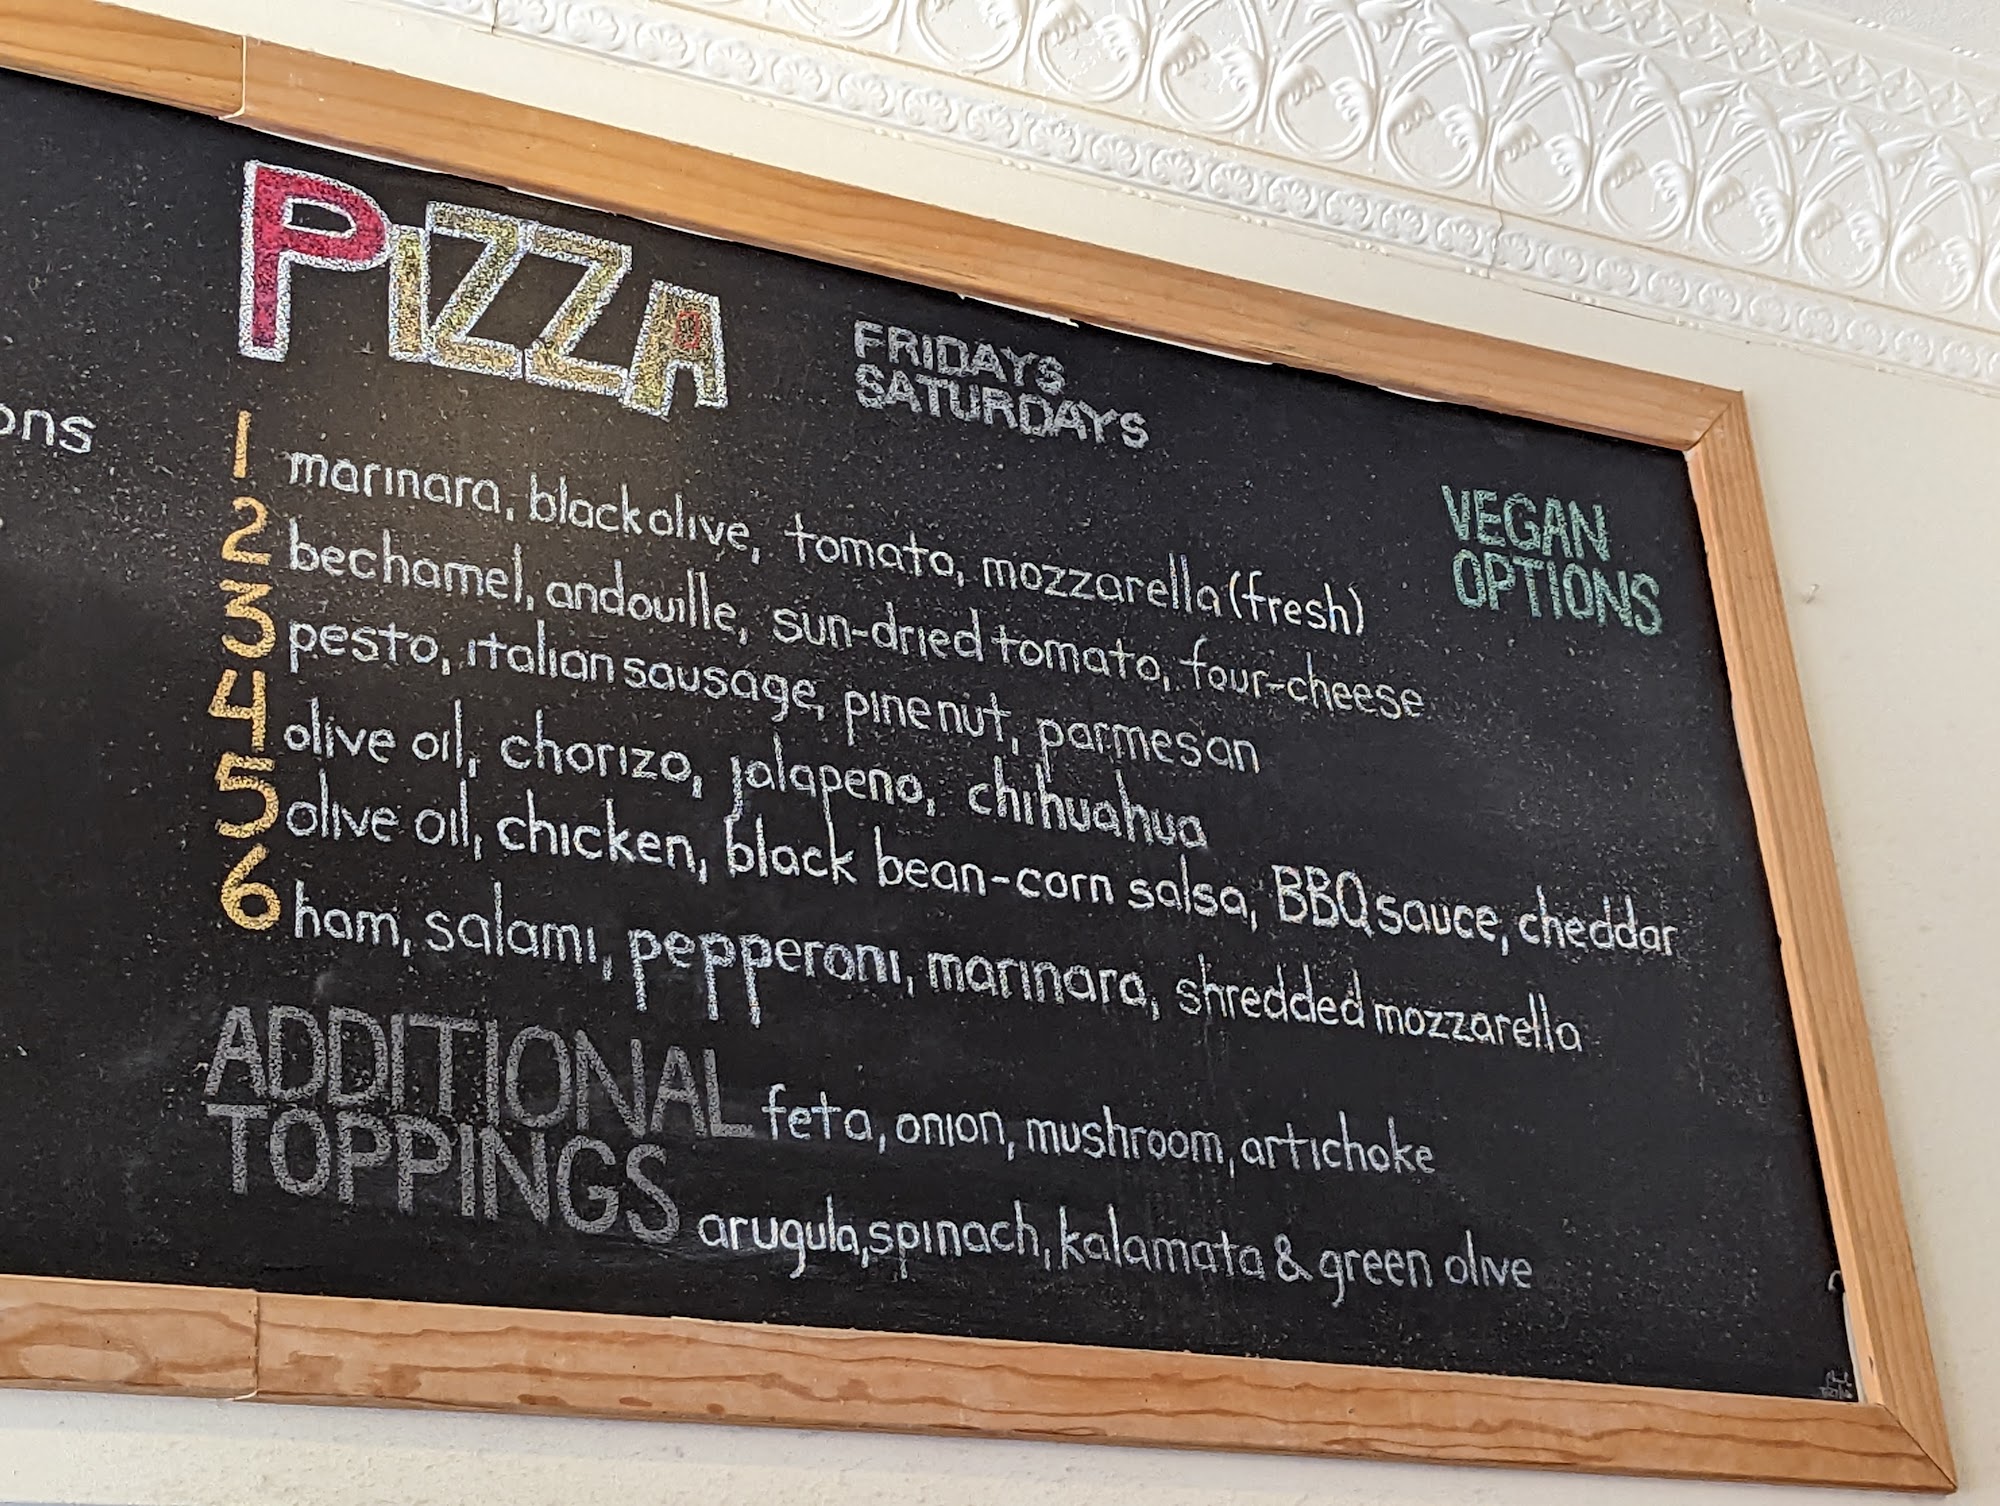 ons
PIZZA
FRIDAYS
SATURDAYS
VEGAN
OPTIONS
1 marinara, black olive, tomato, mozzarella (fresh)
2 bechamel, andouille, sun-dried tomato, four-cheese
3 pesto, italian sausage, pine nut, parmesan
4 olive oil, chorizo, jalapeno, chihuahua
5 olive oil, chicken, black bean-corn salsa, BBQ sauce, cheddar
6 ham, salami, pepperoni, marinara, shredded mozzarella
ADDITIONAL
TOPPINGS
feta, onion, mushroom, artichoke
arugula, spinach, kalamata & green olive